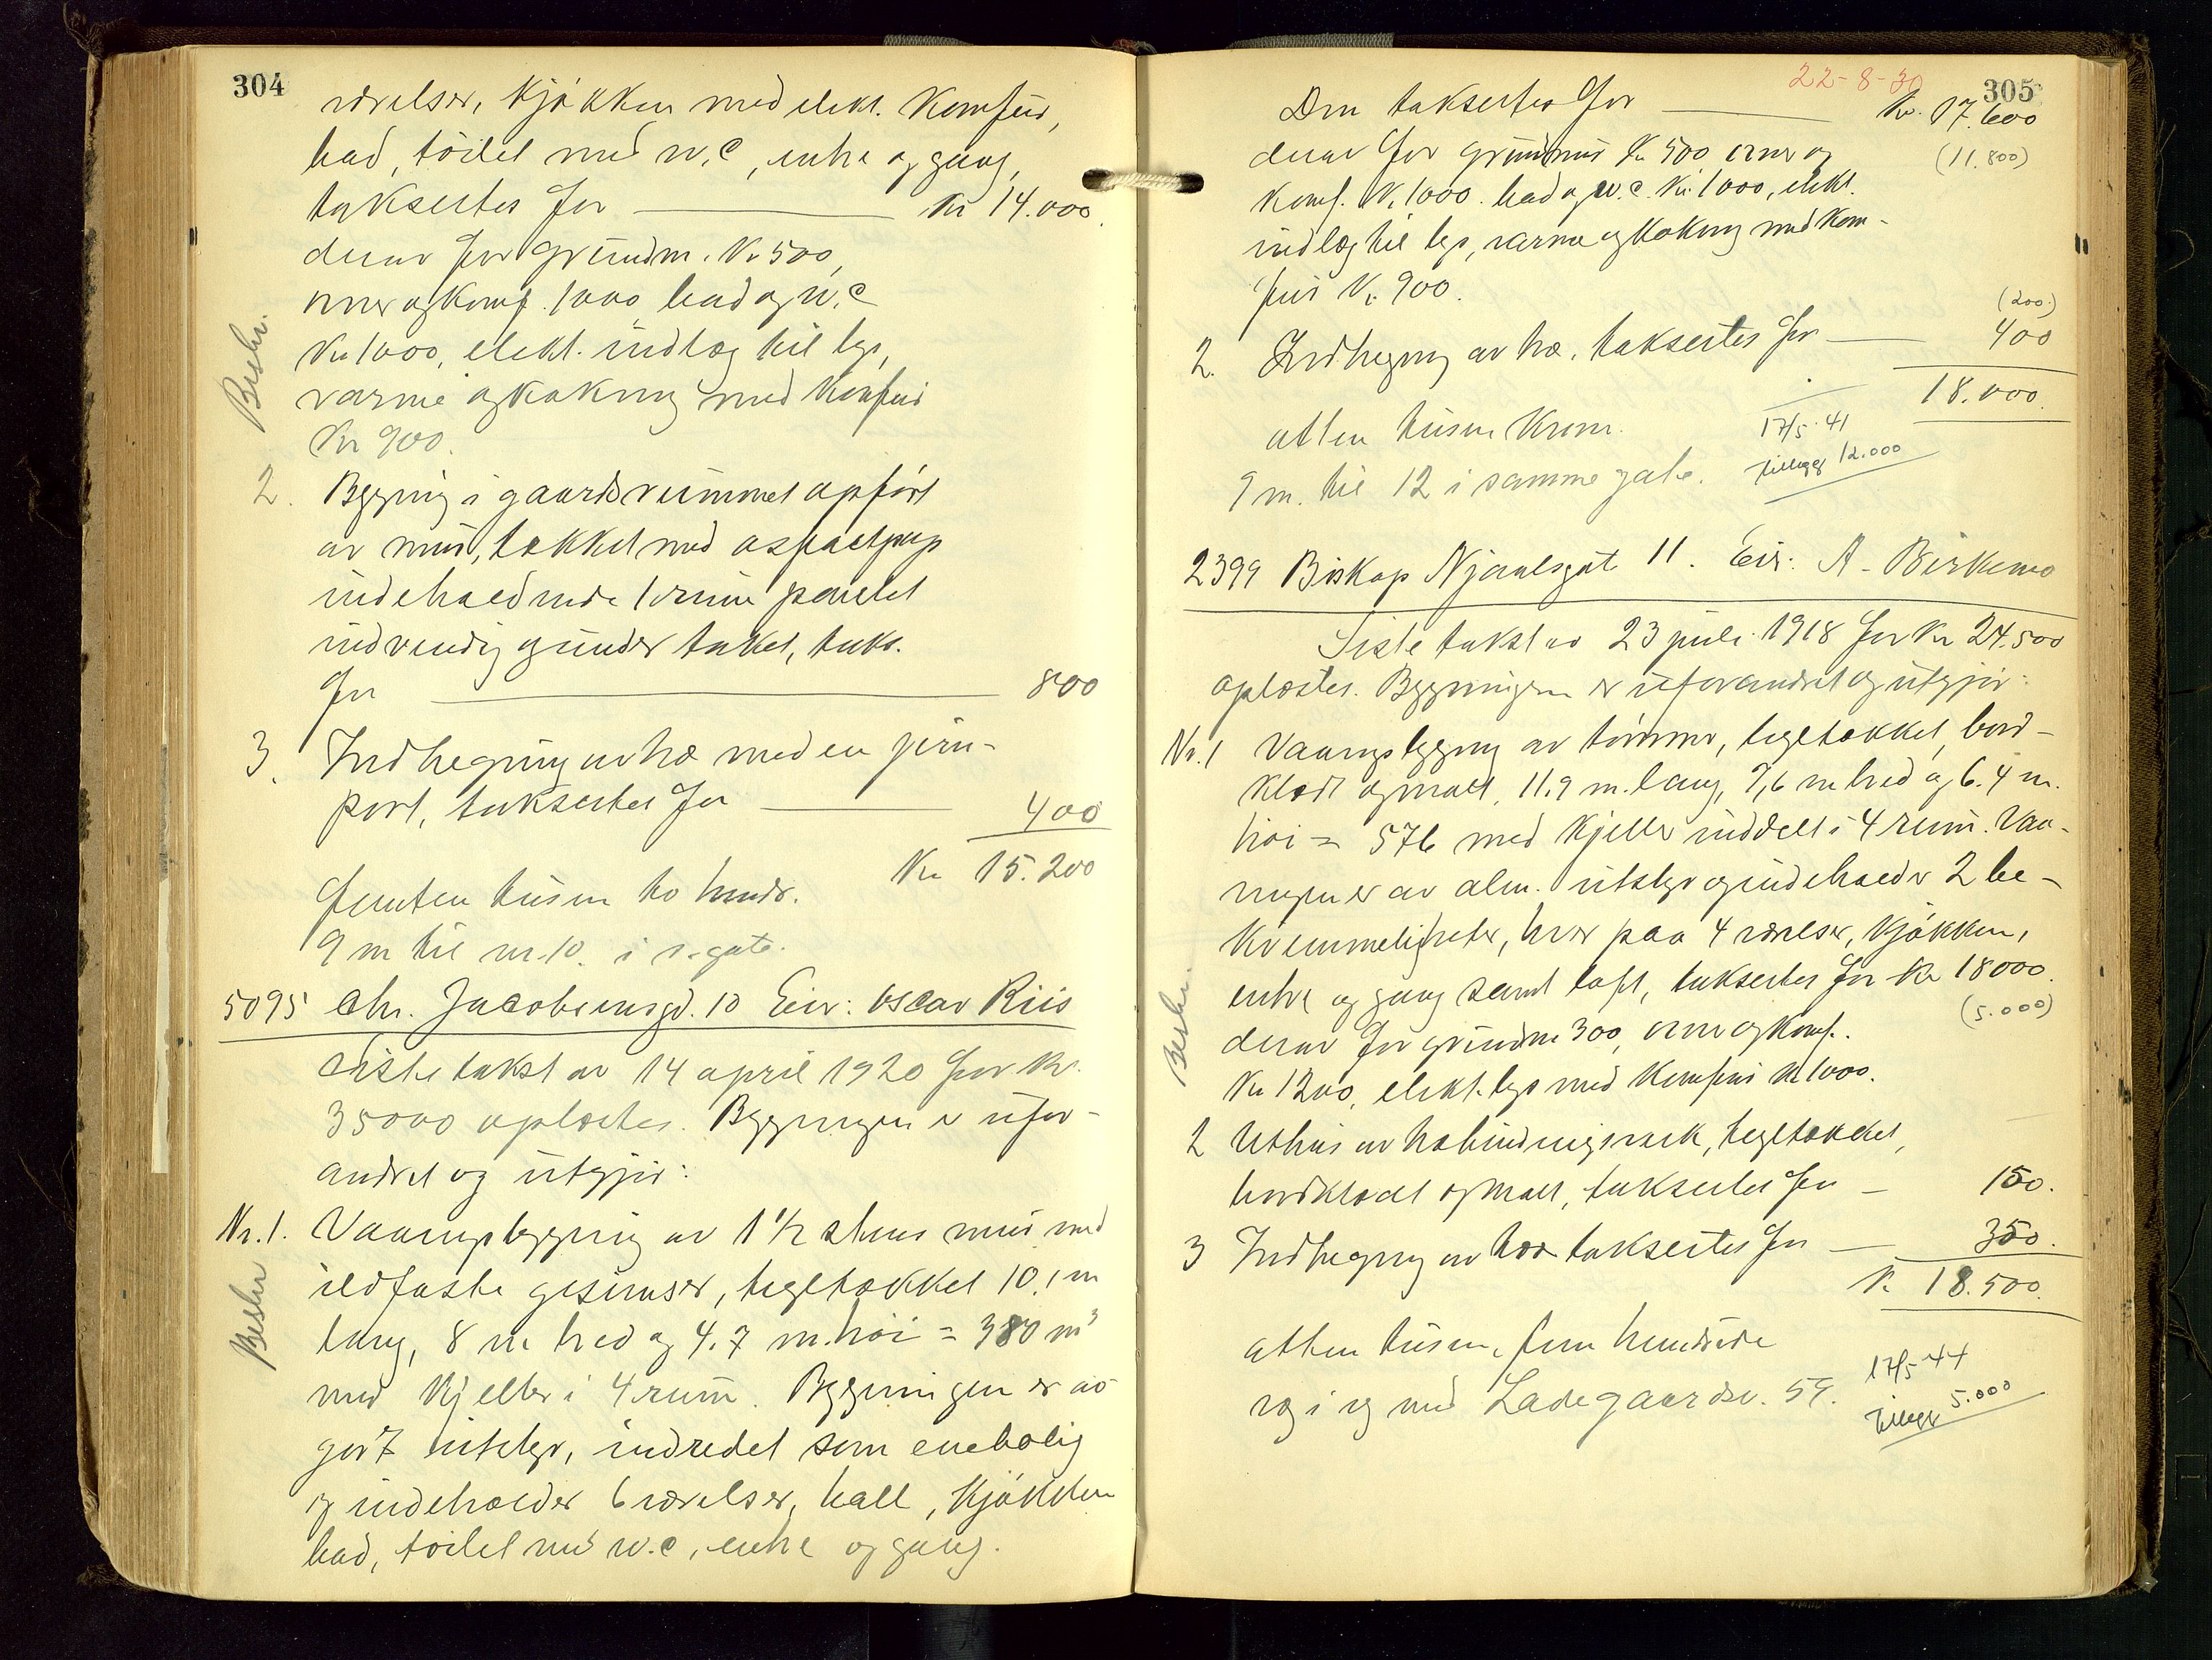 304
værelser, kjøkken med elekt. komfur,
bad, töilet med w.c, entre og gang,
taksertes for kr 14.000
derav for grundm. kr 500,
ovner og komf. 1000, bad og w.c
kr 1000, elekt. indlæg til lys,
varme og kokning med komfur
kr 900.
Beskr.
2. Bygning i gaardsrummet opført
av mur, tækket med asfaltpap
indeholdende 1 rum panelet
indvendig og under taket, taks.
for 800
3. Indhegning av træ med en jern-
port, taksertes for 400
Kr 15.200
femten tusen to hundr.
9 m til nr. 10. i s. gate.
5095 Chr. Jacobsensgd. 10 Eier: Oscar Riis
Siste takst av 14 april 1920 for kr.
35000 oplæstes. Bygningen er ufor-
andret og utgjør:
Nr. 1. Vaaningsbygning av 1 1/2 stens mur med
ildfaste gesimser, tegltækket 10,1 m
lang, 8 m bred og 4.7 m. høi = 380 m³
med kjeller i 4 rum. Bygningen er av
godt utstyr, indredet som enebolig
og indeholder 6 værelser, hall, kjøkken
bad, töilet med w.c, entre og gang.
Beskr
22-8-30
305
Den taksertes for kr. 17.600
(11.800)
derav for grundmur kr 500 ovner og
komf. kr. 1000. bad og w.c. kr. 1000, elekt.
indlæg til lys, varme og kokning med kom-
fur kr. 900.
(200)
2. Indhegning av træ, taksertes for 400
18.000
atten tusen kroner.
17/5 41
Tillegg 12.000
9 m. til 12 i samme gate.
2399 Biskop Njaalsgate 11. Eier: A. Birkemo
Siste takst av 23 juli 1918 for kr 24.500
oplæstes. Bygningen er uforandret og utgjør:
Nr. 1 Vaaningsbygning av tømmer, tegltækket, bord-
klædt og malt, 11.9 m. lang, 7,6 m bred og 6.4 m.
høi = 576 med kjeller inddelt i 4 rum. Vaa-
ningen er av alm. utstyr og indeholder 2 be-
kvemmeligheter, hver paa 4 værelser, kjøkken,
entre og gang samt loft, taksertes for kr 18000.
(5.000)
derav for grundm 300, ovner og komf.
kr 1200, elekt. lys med komfur kr 1000.
Beskr.
2 Uthus av trebindingsverk, tegltækket,
bordklædt og malt, taksertes for 150.
3 Indhegning av træ taksertes for 350.
Kr. 18.500.
atten tusen, fem hundrede
17/5 44
Tillegg 5.000
væg i væg med Ladegaardsv. 59.